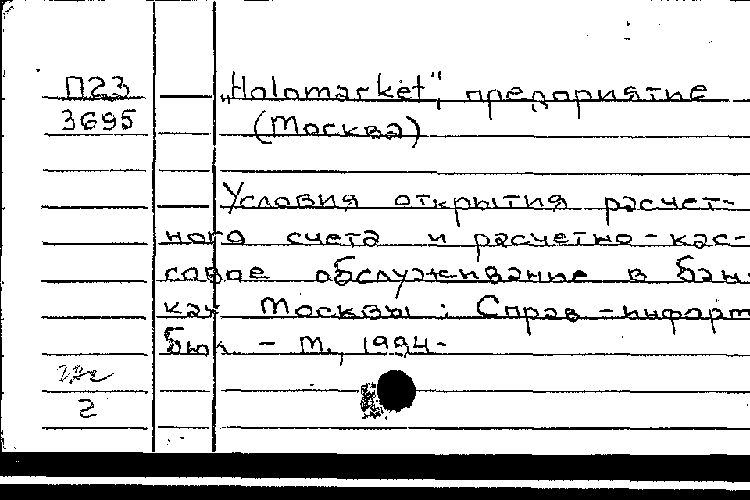 П23 „Holomarket“, предприятие
3695 (Москва)
Условия открытия расчет-
ного счета и расчетно-кас-
совое обслуживание в бан-
ках Москвы : Справ-информ
бюл. - М., 1994-
2